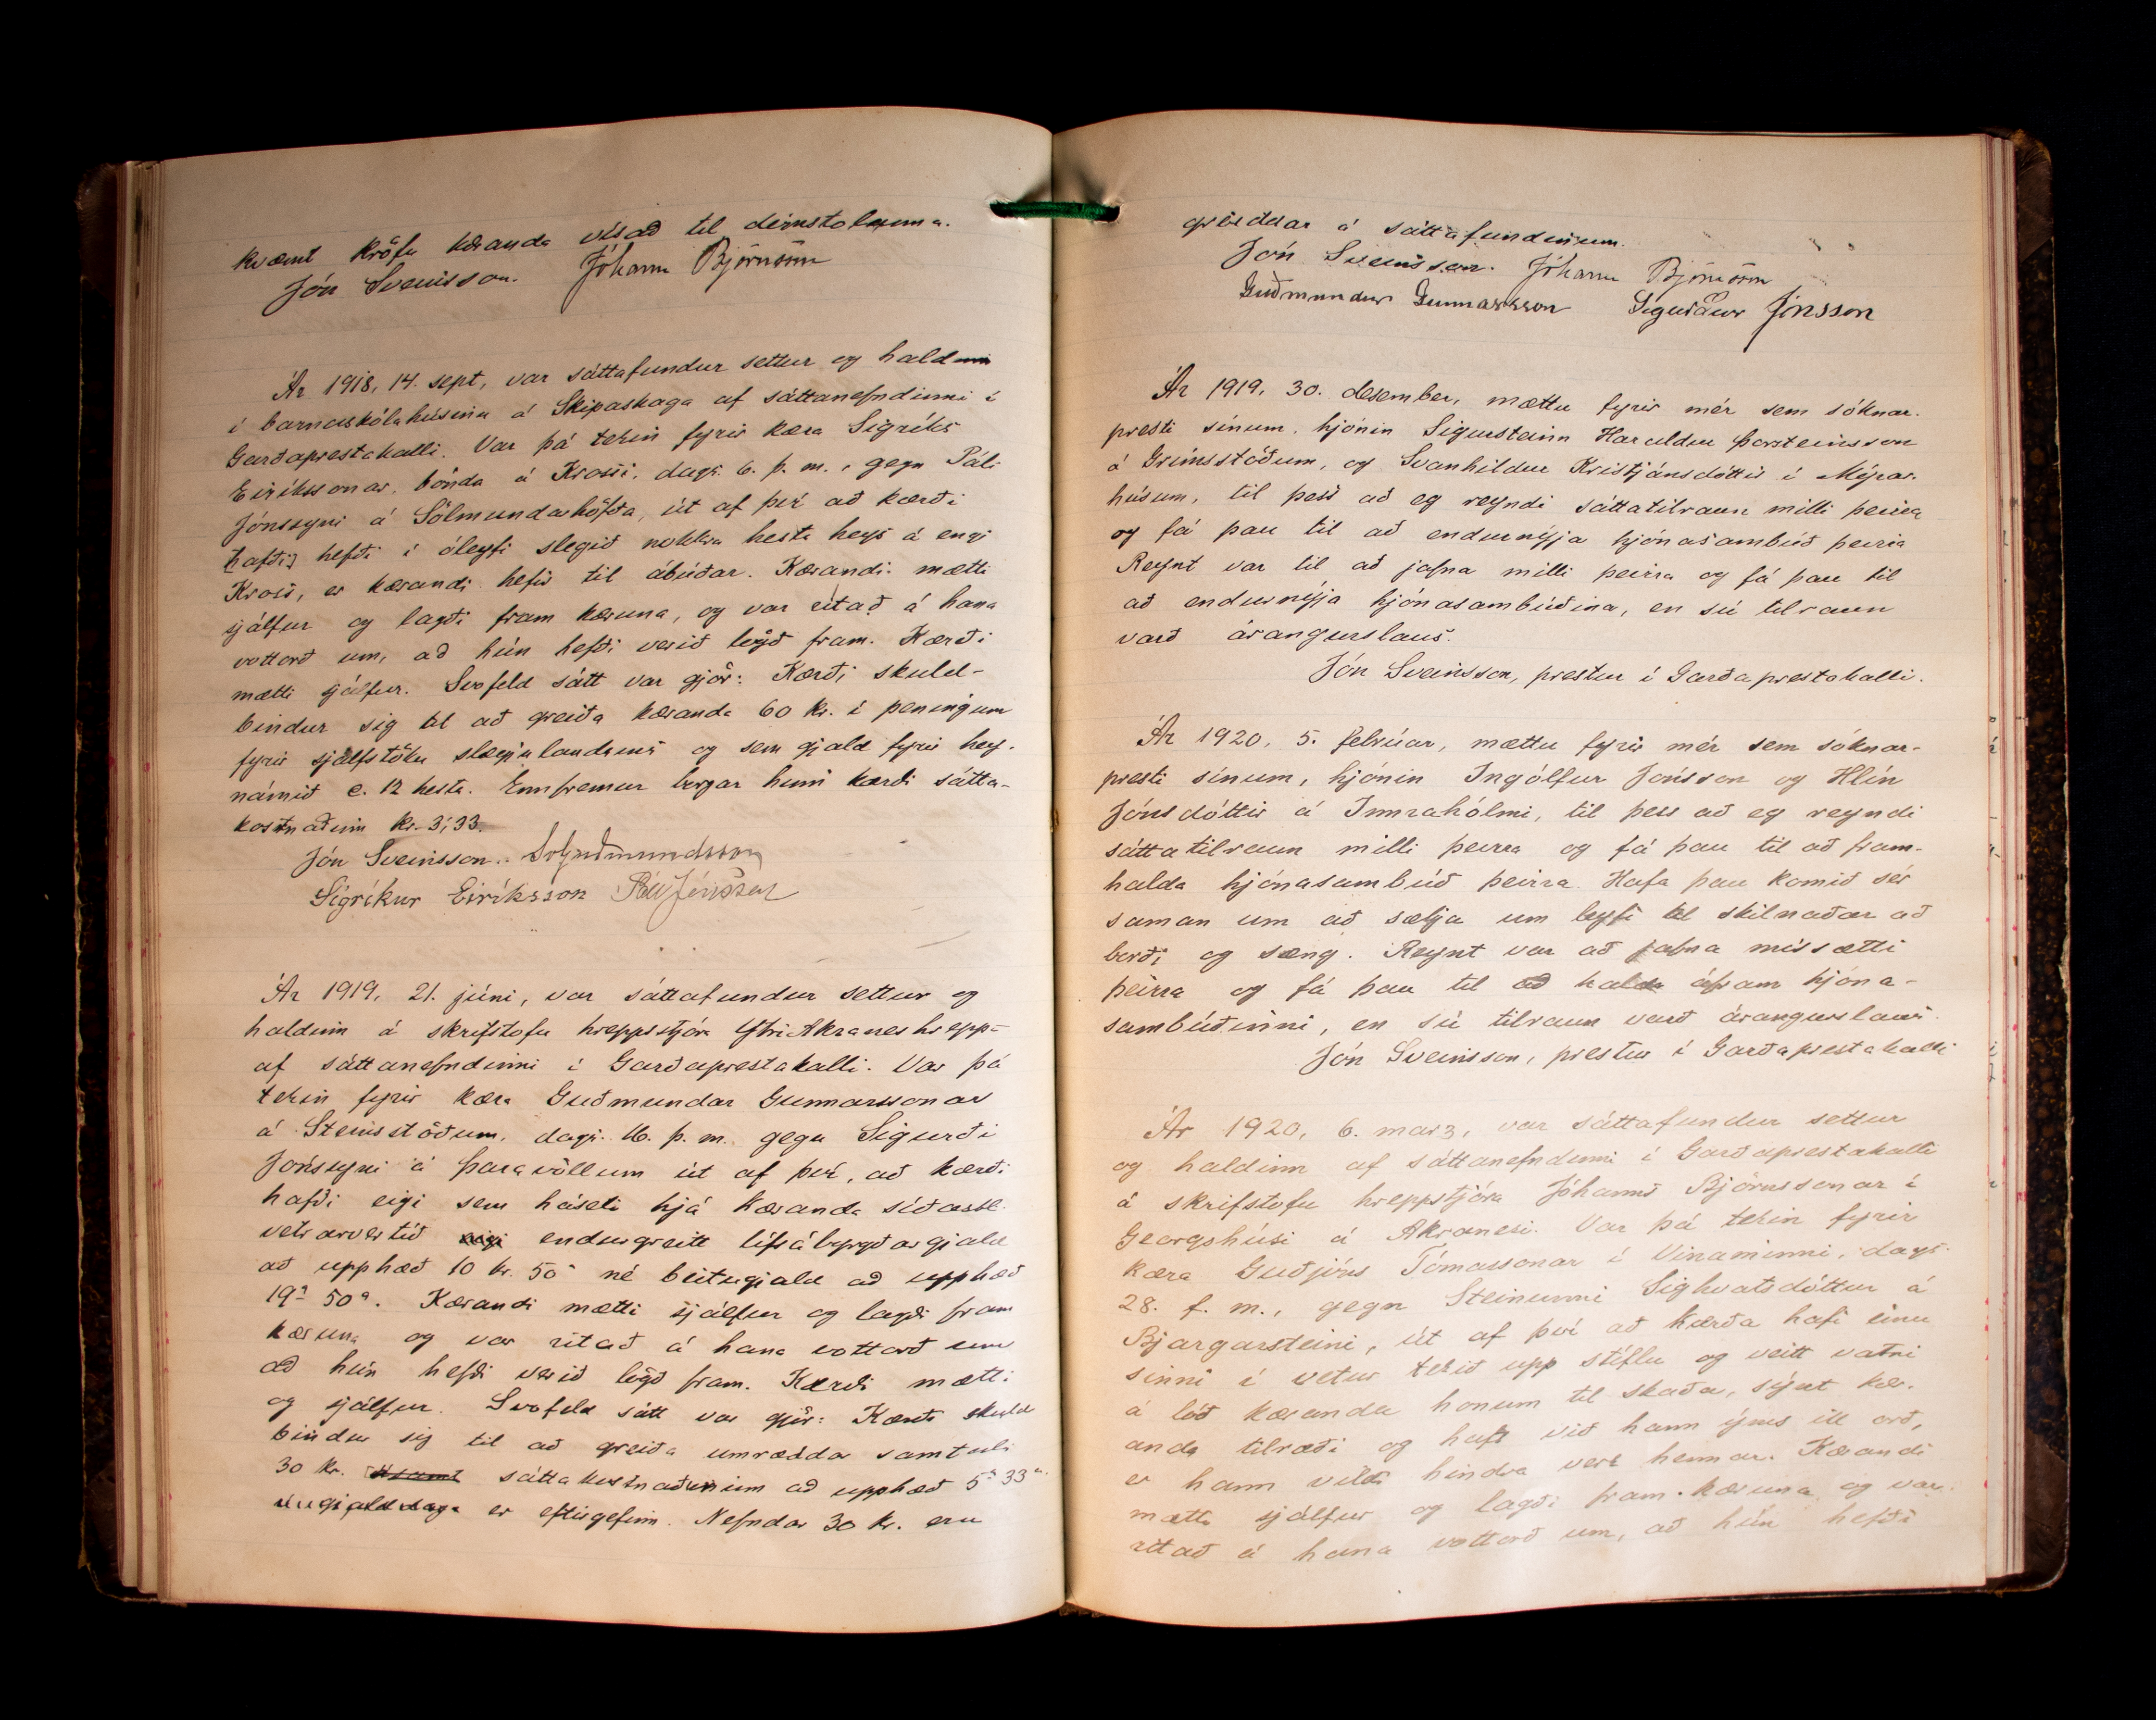 kvæmt kröfu kæranda vísað til dómstolanna.
Jón Sveinsson. Jóhann Björnsson
Ár 1918, 14. sept, var sáttafundur settur og haldinn
í barnaskólahúsinu á Skipaskaga af sáttanefndinni í
Garðaprestakalli. Var þá tekin fyrir kæra Sigríks
Eiríkssonar, bónda á Krossi, dags. 6. þ. m., gegn Páli
Jónssyni á Sólmundarhöfða, út af því að kærði
hefði í óleyfi slegið nokkra hesta heys á engi
Kross, er kærandi hefir til ábúðar. Kærandi mætti
sjálfur og lagði fram kæruna, og var ritað á hana
vottorð um, að hún hefði verið lögð fram. Kærði
mætti sjálfur. Svofeld sátt var gjör: Kærði skuld-
bindur sig til að greiða kæranda 60 kr. í peningum
fyrir sjálfstöku slægjulandsins og sem gjald fyrir hey-
námið c. 12 hesta. Ennfremur borgar hinn kærði sátta-
kostnaðinn kr. 3,33.
Jón Sveinsson. SvGuðmundsson
Sigríkur Eiríksson Páll Jónsson
Ár 1919, 21. júní, var sáttafundur settur og
haldinn á skrifstofu hreppstjóra Ytri Akraneshrepp-
af sáttanefndinni í Garðaprestakalli. Var þá
tekin fyrir kæra Guðmundar Gunnarssonar
á Steinsstöðum, dags. 16. þ. m. gegn Sigurði
Jónssyni á Þaravöllum út af því, að kærði
hafði eigi sem háseti hjá kæranda síðastl.
vetrarvertíð endurgreitt lífsábyrgðargjald
að upphæð 10 kr. 50 a né beitugjald að upphæð
19 kr 50 a. Kærandi mætti sjálfur og lagði fram
kæruna og var ritað á hana vottorð um
að hún hefði verið lögð fram. Kærði mætti
og sjálfur. Svofeld sátt var gjör: Kærði skuld
bindur sig til að greiða umræddar samtals
30 kr. sáttakostnaðurinn að upphæð 5 kr 33 a.
er eftirgefinn. Nefndar 30 kr. eru
greiddar á sáttafundinum.
Jón Sveinsson. Jóhann Björnsson
Guðmundur Gunnarsson Sigurður Jónsson
Ár 1919, 30. desember, mættu fyrir mér sem sóknar-
presti sínum, hjónin Sigursteinn Haraldur Þorsteinsson
á Grímsstöðum, og Svanhildur Kristjánsdóttir í Mýrar-
húsum, til þess að eg reyndi sáttatilraun milli þeirra
og fá þau til að endurnýja hjónasambúð þeirra
Reynt var til að jafna milli þeirra og fá þau til
að endurnýja hjónasambúðina, en sú tilraun
varð árangurslaus.
Jón Sveinsson, prestur í Garðaprestakalli.
Ár 1920, 5. febrúar, mættu fyrir mér sem sóknar-
presti sínum, hjónin Ingólfur Jónsson og Hlín
Jónsdóttir á Innrahólmi, til þess að eg reyndi
sáttatilraun milli þeirra og fá þau til að fram-
halda hjónasambúð þeirra. Hafa þau komið sér
saman um að sækja um leyfi til skilnaðar að
borði og sæng. Reynt var að jafna missætti
þeirra og fá þau til að halda áfram hjóna-
sambúðinni, en sú tilraun varð árangurslaus.
Jón Sveinsson, prestur í Garðaprestakalli
Ár 1920, 6. marz, var sáttafundur settur
og haldinn af sáttanefndinni í Garðaprestakalli
á skrifstofu hreppstjóra Jóhanns Björnssonar í
Georgshúsi á Akranesi. Var þá tekin fyrir
kæra Guðjóns Tómassonar í Vinaminni, dags.
28. f. m., gegn Steinunni Sighvatsdóttur á
Bjargarsteini, út af því að kærða hafi einu
sinni í vetur tekið upp stíflu og veitt vatni
á lóð kæranda honum til skaða, sýnt kær-
anda tilræði og haft við hann ýms ill orð,
er hann vildi hindra verk hennar. Kærandi
mætti sjálfur og lagði fram kæruna og var
ritað á hana vottorð um, að hún hefði